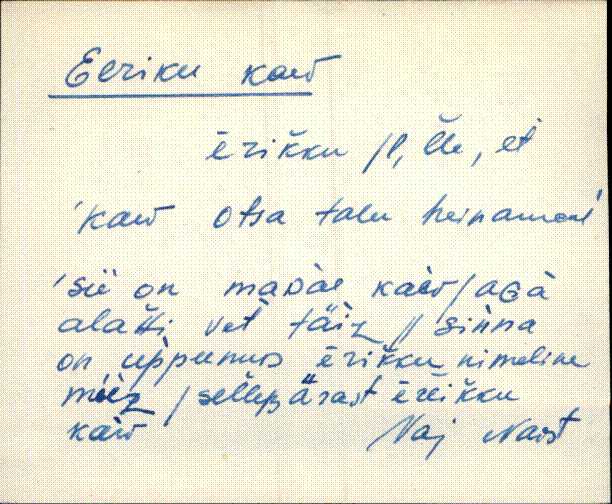 Eeriku kaev
ērikku /l, lle, et
'kaev otsa talu heinamaal
'siĭ on maDàl kaèv/aGà
alàtti vet täiz // sinna
on uppunuD ērikku nimeline
miez / selleperäst ērikku
kaèv Naj Navst